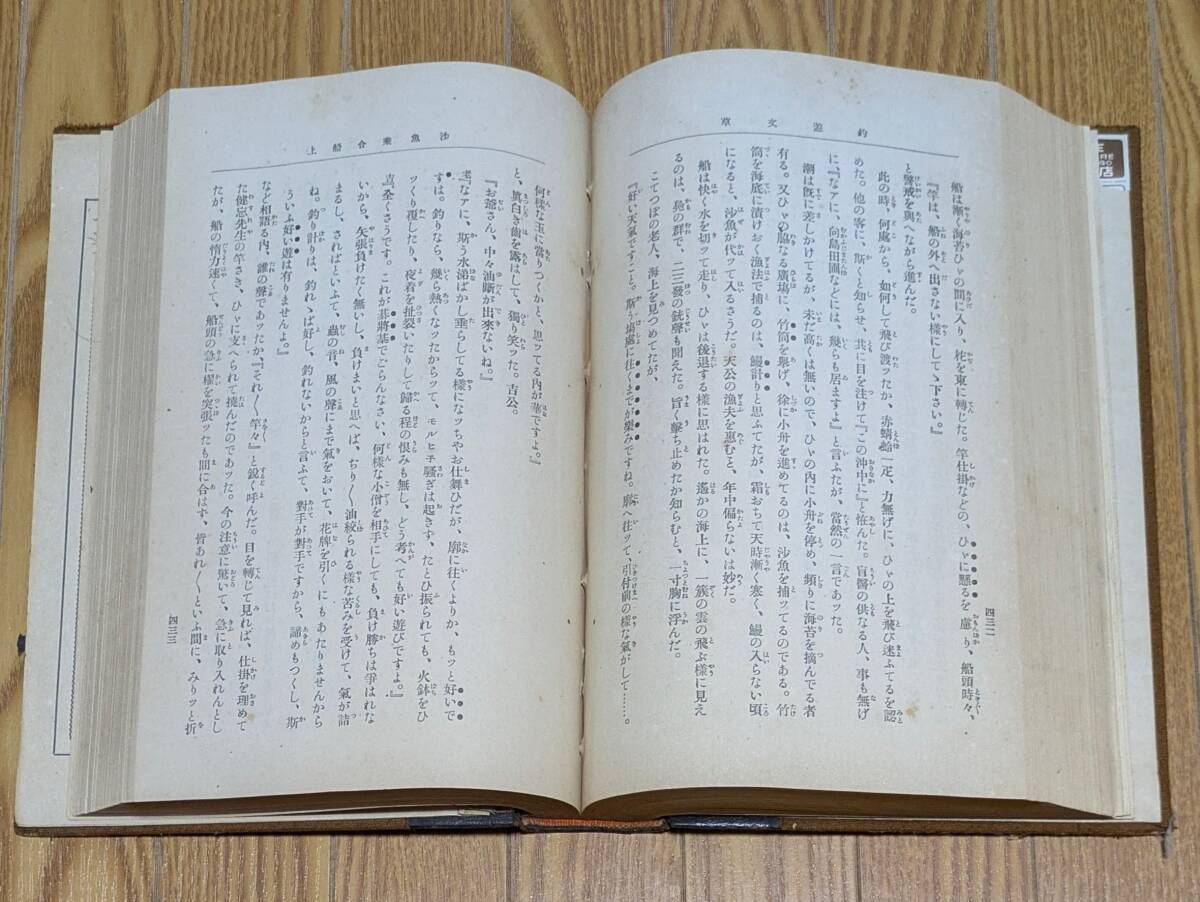 釣遊文章
船は漸く海苔ひゞの間に入り、柁を東に轉じた。竿仕掛などの、ひゞに懸るを慮り、船頭時々、
『竿は、船の外へ出さない樣にして下さい。』
と警戒を與へながら進んだ。
此の時、何處から、如何して飛び渡ッたか、赤蜻蛉一疋、力無げに、ひゞの上を飛び迷ふてるを認
めた。他の客に、斯くと知らせ、共に目を注けて『この沖中に』と恠んだ。盲醫の供なる人、事も無げ
に『なアに、向島田圃などには、幾らも居ますよ』と言ふたが、當然の一言であッた。
潮は既に差しかけてるが、未だ高くは無いので、ひゞの内に小舟を停め、頻りに海苔を摘んでる者
有る。又ひゞの脇なる廣場に、竹筒を擧げ、徐に小舟を進めてるのは、沙魚を捕ッてるのである。竹
筒を海底に漬けおく漁法で捕るのは、鰻計りと思ふてたが、霜おちて天時漸く寒く、鰻の入らない頃
になると、沙魚が代ッて入るさうだ。天公の漁夫を惠むと、年中偏らないは妙だ。
船は快く水を切ッて走り、ひゞは後退する樣に思はれた。遙かの海上に、一簇の雲の飛ぶ樣に見え
るのは、鳧の群で、二三發の銃聲も聞えた。旨く擊ち止めたか知らむと、一寸胸に浮んだ。
こてつぽの老人、海上を見つめてたが、
『好い天氣ですこと。斯う塲處に往くまでが樂みですね。廓へ往ッて、引付前の樣な氣がして……。
四三二
沙魚乘合船 上
何樣な玉に當りつくかと、思ッてる内が華ですよ。』
と、眞白き齒を露はして、獨り笑ッた。吉公。
『お爺さん、中々油斷が出來ないね。』
老『なアに、斯う水涕ばかし垂らしてる樣になッちやお仕舞ひだが、廓に往くよりか、もッと好いで
すは。釣りなら、幾ら熱くなッたからッて、モルヒネ騷ぎは起きず、たとひ振られても、火鉢をひ
ッくり覆したり、夜着を扯裂いたりして歸る程の恨みも無し、どう考へても好い遊びですよ。』
吉『全くさうです。これが碁將棊でごらんなさい、何樣な小僧を相手にしても、負け勝ちは爭はれな
いから、矢張負けたく無いし、負けまいと思へば、ぢり〳〵油絞られる樣な苦みを受けて、氣が詰
まるし、さればといふて、蟲の音、風の聲にまで氣をおいて、花牌を引くにもあたりませんから
ね。釣り計りは、釣れゝば好し、釣れないからと言ふて、對手が對手ですから、諦めもつくし、斯
ういふ好い遊は有りませんよ。』
など相語る内、誰の聲であッたか『それ〳〵竿々』と鋭く呼んだ。目を轉じて見れば、仕掛を理めて
た健忘先生の竿さき、ひゞに支へられて撓んだのであッた。今の注意に驚いて、急に取り入れんとし
たが、船の惰力速くて、船頭の急に櫂を突張ッたも間に合はず、皆あれ〳〵といふ間に、みりッと折
四三三